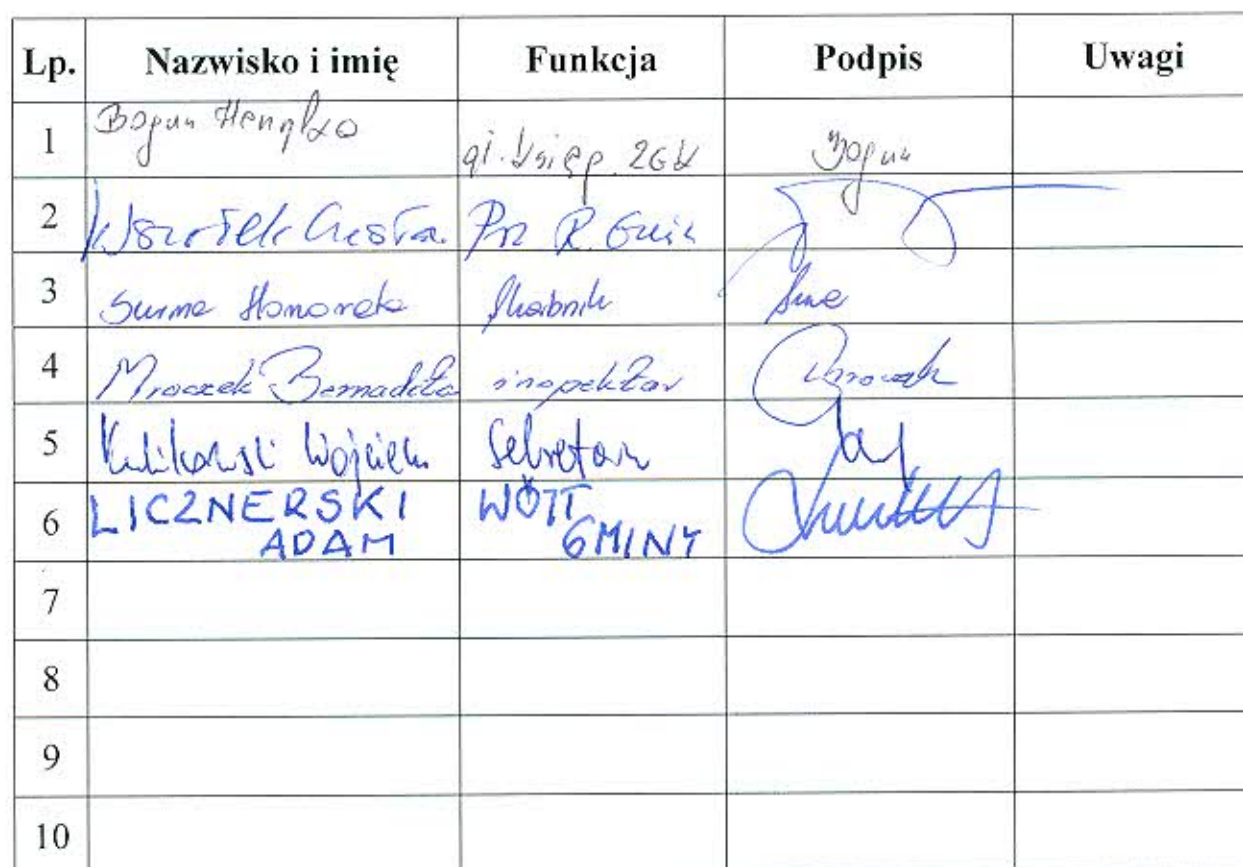 Lp. Nazwisko i imię Funkcja Podpis Uwagi
1 Bogun Henryka gł. księg. ZGK Bogun
2 Wszołek Czesław Prz R. Gmin
3 Surma Honorata Skarbnik
4 Mroczek Bernadeta inspektor Mroczek
5 Kulikowski Wojciech Sekretarz
6 LICZNERSKI WÓJT
ADAM GMINY
7
8
9
10